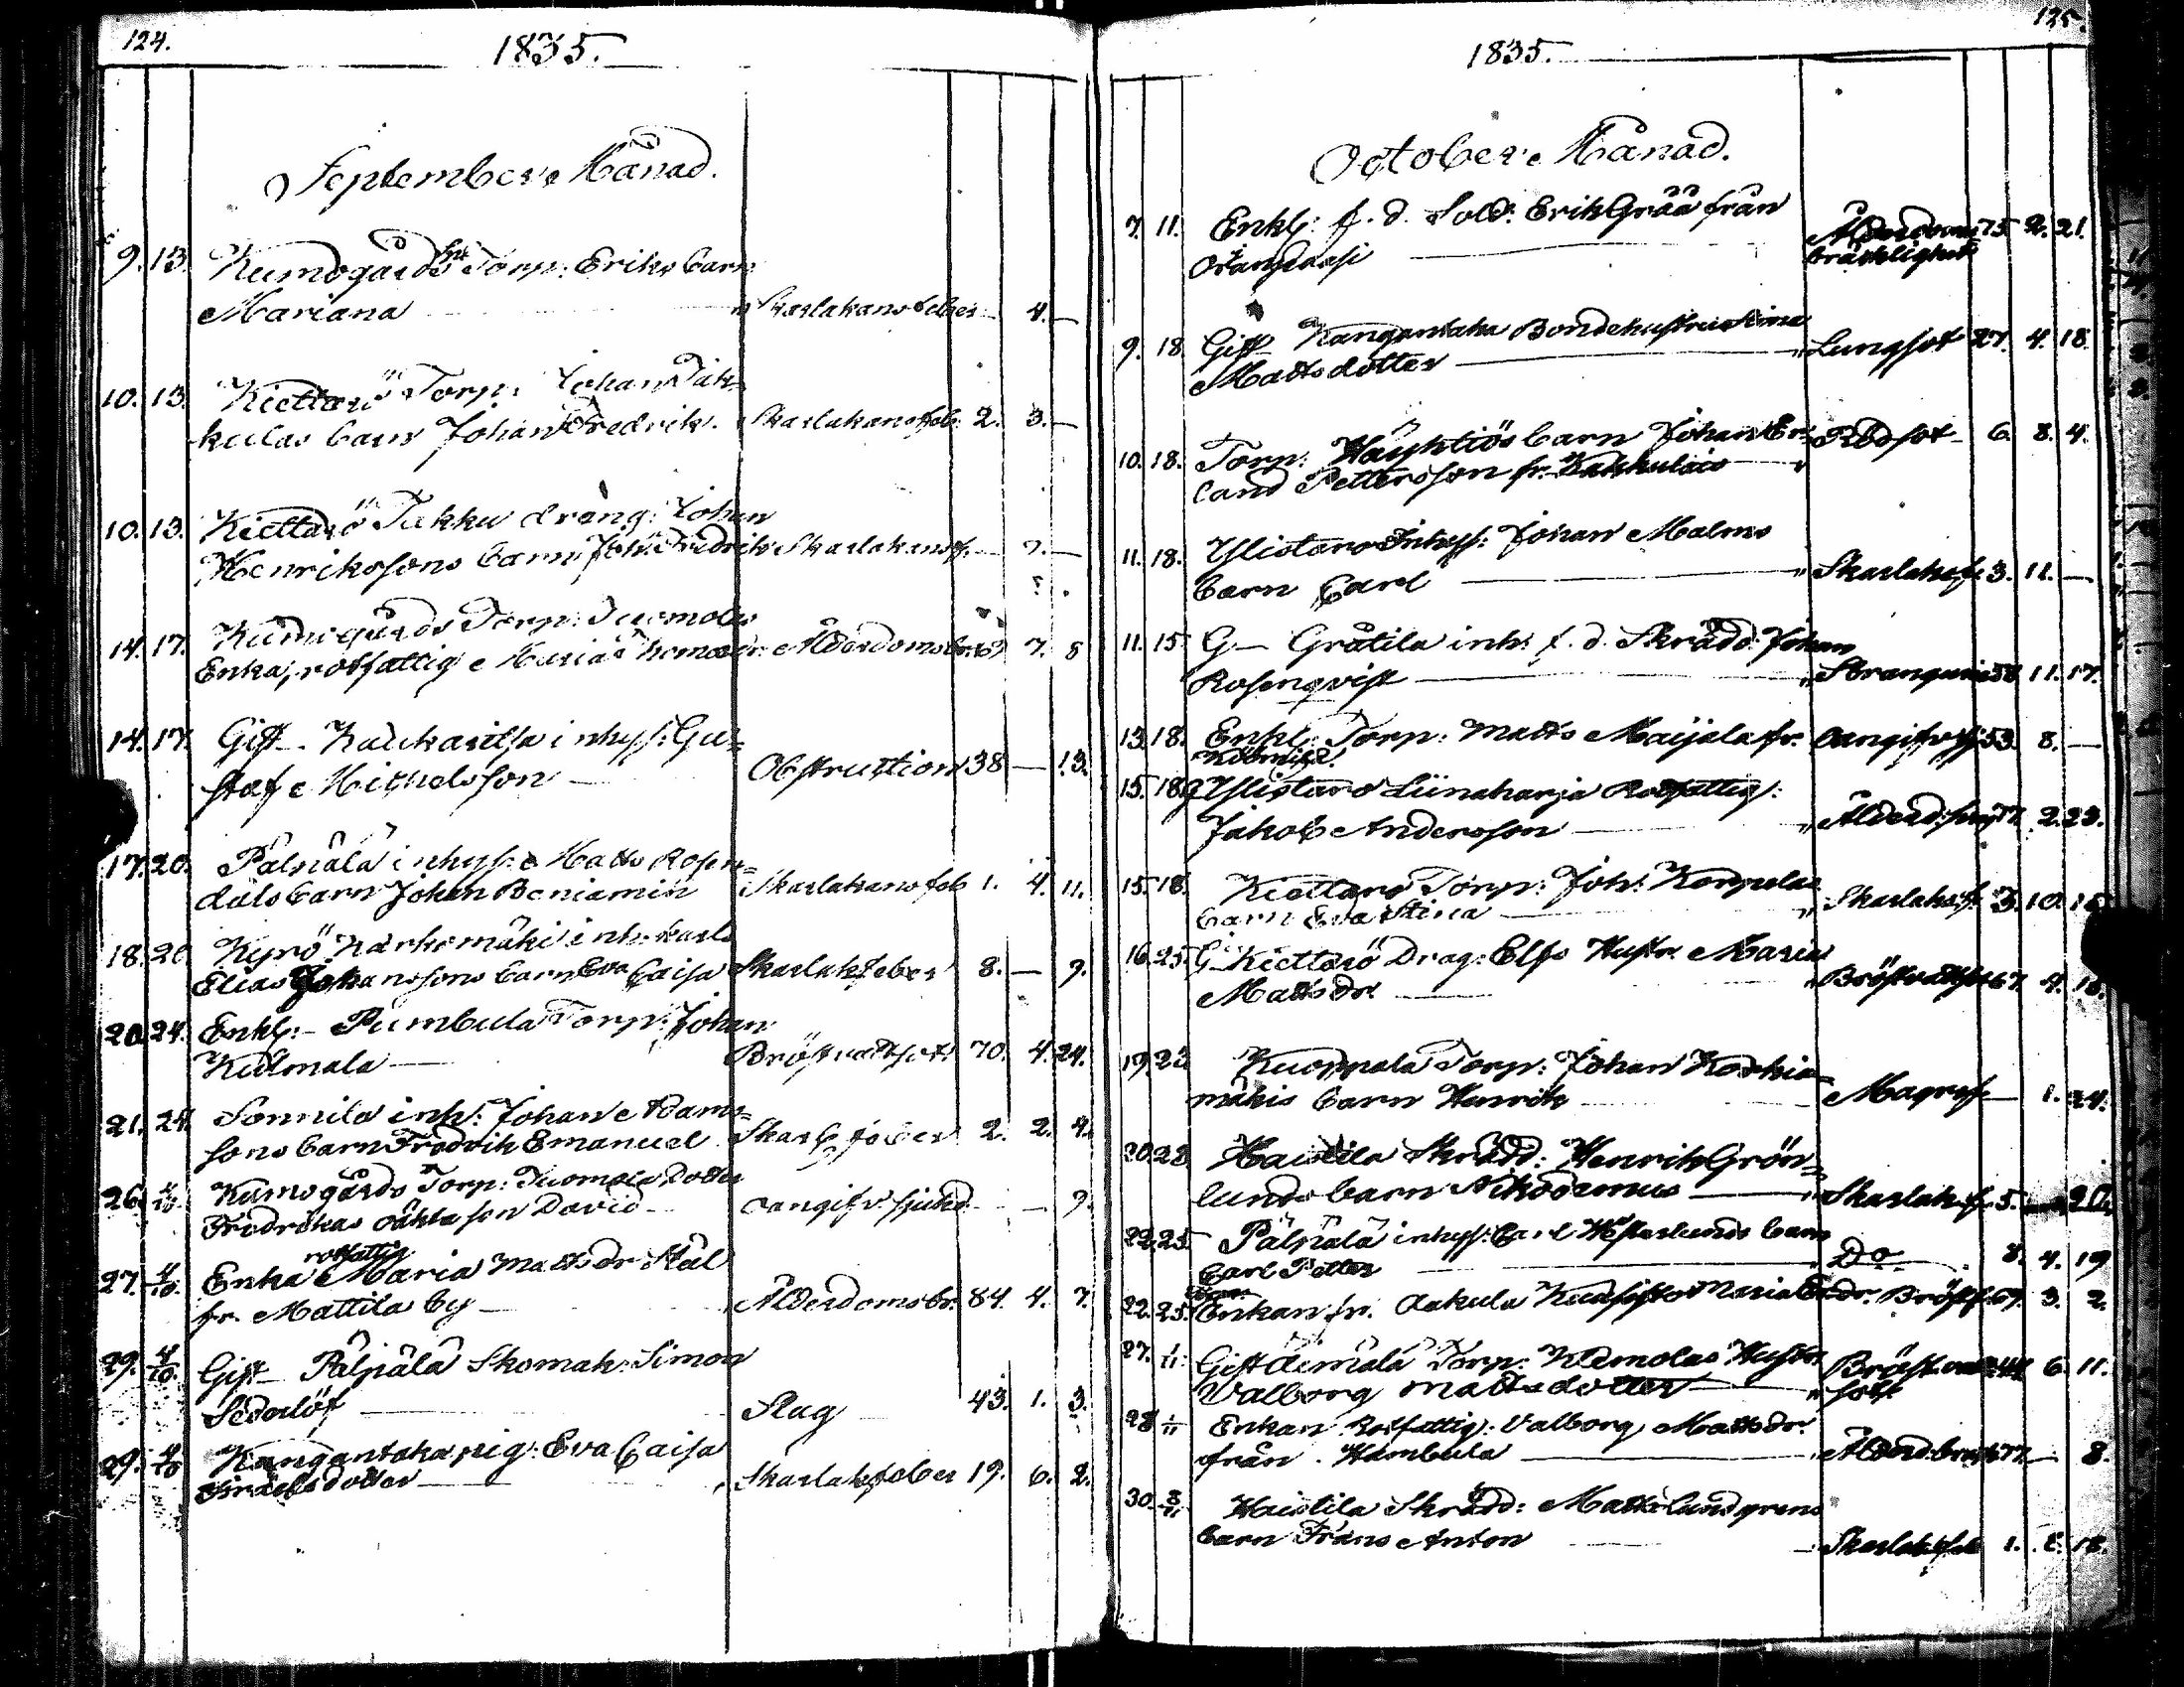 124.
1835.
September Månad.
9. 13. Kumogårds Torp: Eriks barn
Mariana Skarlakansfeber — 4. —
10. 13. Kiettarö Torp: Johan Jak-
kulas barn Johan Fredrik. Skarlakansfeb. 2. 3. —
10. 13. Kiettarö Jakku dräng: Johan
Henrikssons barn Joh: Fredrik Skarlakansf. — 7. —
14. 17. Kumogårds Torp: Tuomolas
Enka, rotfattig Maria Ålderdomsbr. 7. 8
14. 17. Gift Inhys: Gu-
staf Michelsson — Obstruction 38 — 13.
17. 20. Pälpälä inhys: Matts Rosen-
dals barn Johan Beniamin Skarlakansfeb 1. 4. 11.
18. 20. Kyrö Karhumäki inh: karls
Elias Johanssons barn Eva Caisa Skarlaksfeber 8. — 9.
20. 24. Enkl: Pumbula Torp: Johan
Kulmala — Bröstvattsot 70. 4. 24.
21. 24. Sonnila inh: Johan Adams-
sons barn Fredrik Emanuel Skarl: feber 2. 2. 4.
26. 4/10. Kumogårds Torp: Tuomola Dotter
Fredrikas oäkta son David — oangifv. sjukd. — — 9.
rotfattig
27. 4/10. Enka Maria Mattsdr Stål
fr. Mattila by — Ålderdomsbr. 84. 4. 7.
29. 4/10. Gift Pälpälä Skomak: Simon
Sederlöf — Slag 43. 1. 3.
29. 4/10 Kangantaka pig: Eva Caisa
Israelsdotter — Skarlaksfeber 19. 6. 2.
125.
1835.
October Månad.
7. 11. Enkl: f. d. Sold: Erik Grää från
Orangsaasi — Ålderdoms 75 2. 21.
bräcklighet
9. 18. Gift Kangantaka Bondehustrun Stina
Mattsdotter — Lungsot 27. 4. 18.
10. 18. Torp: Häyhtiös barn Johan Er- Rödsot 6. 8. 4.
land Pettersson fr. Kakkulais
11. 18. Ylistaro Inhys: Johan Malms
barn Carl — Skarlaksf. 3. 11. —
11. 15 G— Gråtila inh: f. d. Skrädd: Johan
Rosenqvist — Stranguri 58 11. 17.
13. 18. Enkl: Torp: Matts Maijala fr. oangifv. sj. 53. 8. —
15. 18. G Ylistaro Liinaharja Rotfattig:
Jakob Andersson — Ålderd: 77. 2. 23.
15. 18. Kiettarö Torp: Joh: Korpelas
barn Eva Stina — Skarlaksf. 3. 10. 15
16. 25. G— Kiettarö Drag: Elfs Hustr. Maria
Mattsdr — Bröstvattsot 67. 4. 18.
19. 23 Kuoppala Torp: Johan Koskia-
mäkis barn Henrik — Magref — 1. 24.
20. 28 Haistila Skrädd: Henrik Grön-
lunds barn Nikodemus — Skarlak. f. 5. — 20.
22. 25. Pälpälä inhys: Carl Westerlunds barn
Carl Petter — Do — 8. 4. 19
22. 25. Enkan fr. Aakula Maria Er.dr. Bröstf. 69. 3. 2.
27. 1/11. Gift Äimälä Torp: Klemolas Hustr.
Valborg Mattsdotter — Bröstvatt- 44 6. 11.
sot
28 1/11 Enkan Rotfattig: Valborg Mattsdr.
från Humbula — Ålderd. brackl. 77. — 8.
30. 8/11 Haistila Skrädd: Matts Lundgrens
barn Frans Anton — Skarlaksfeb 1. 8. 18.